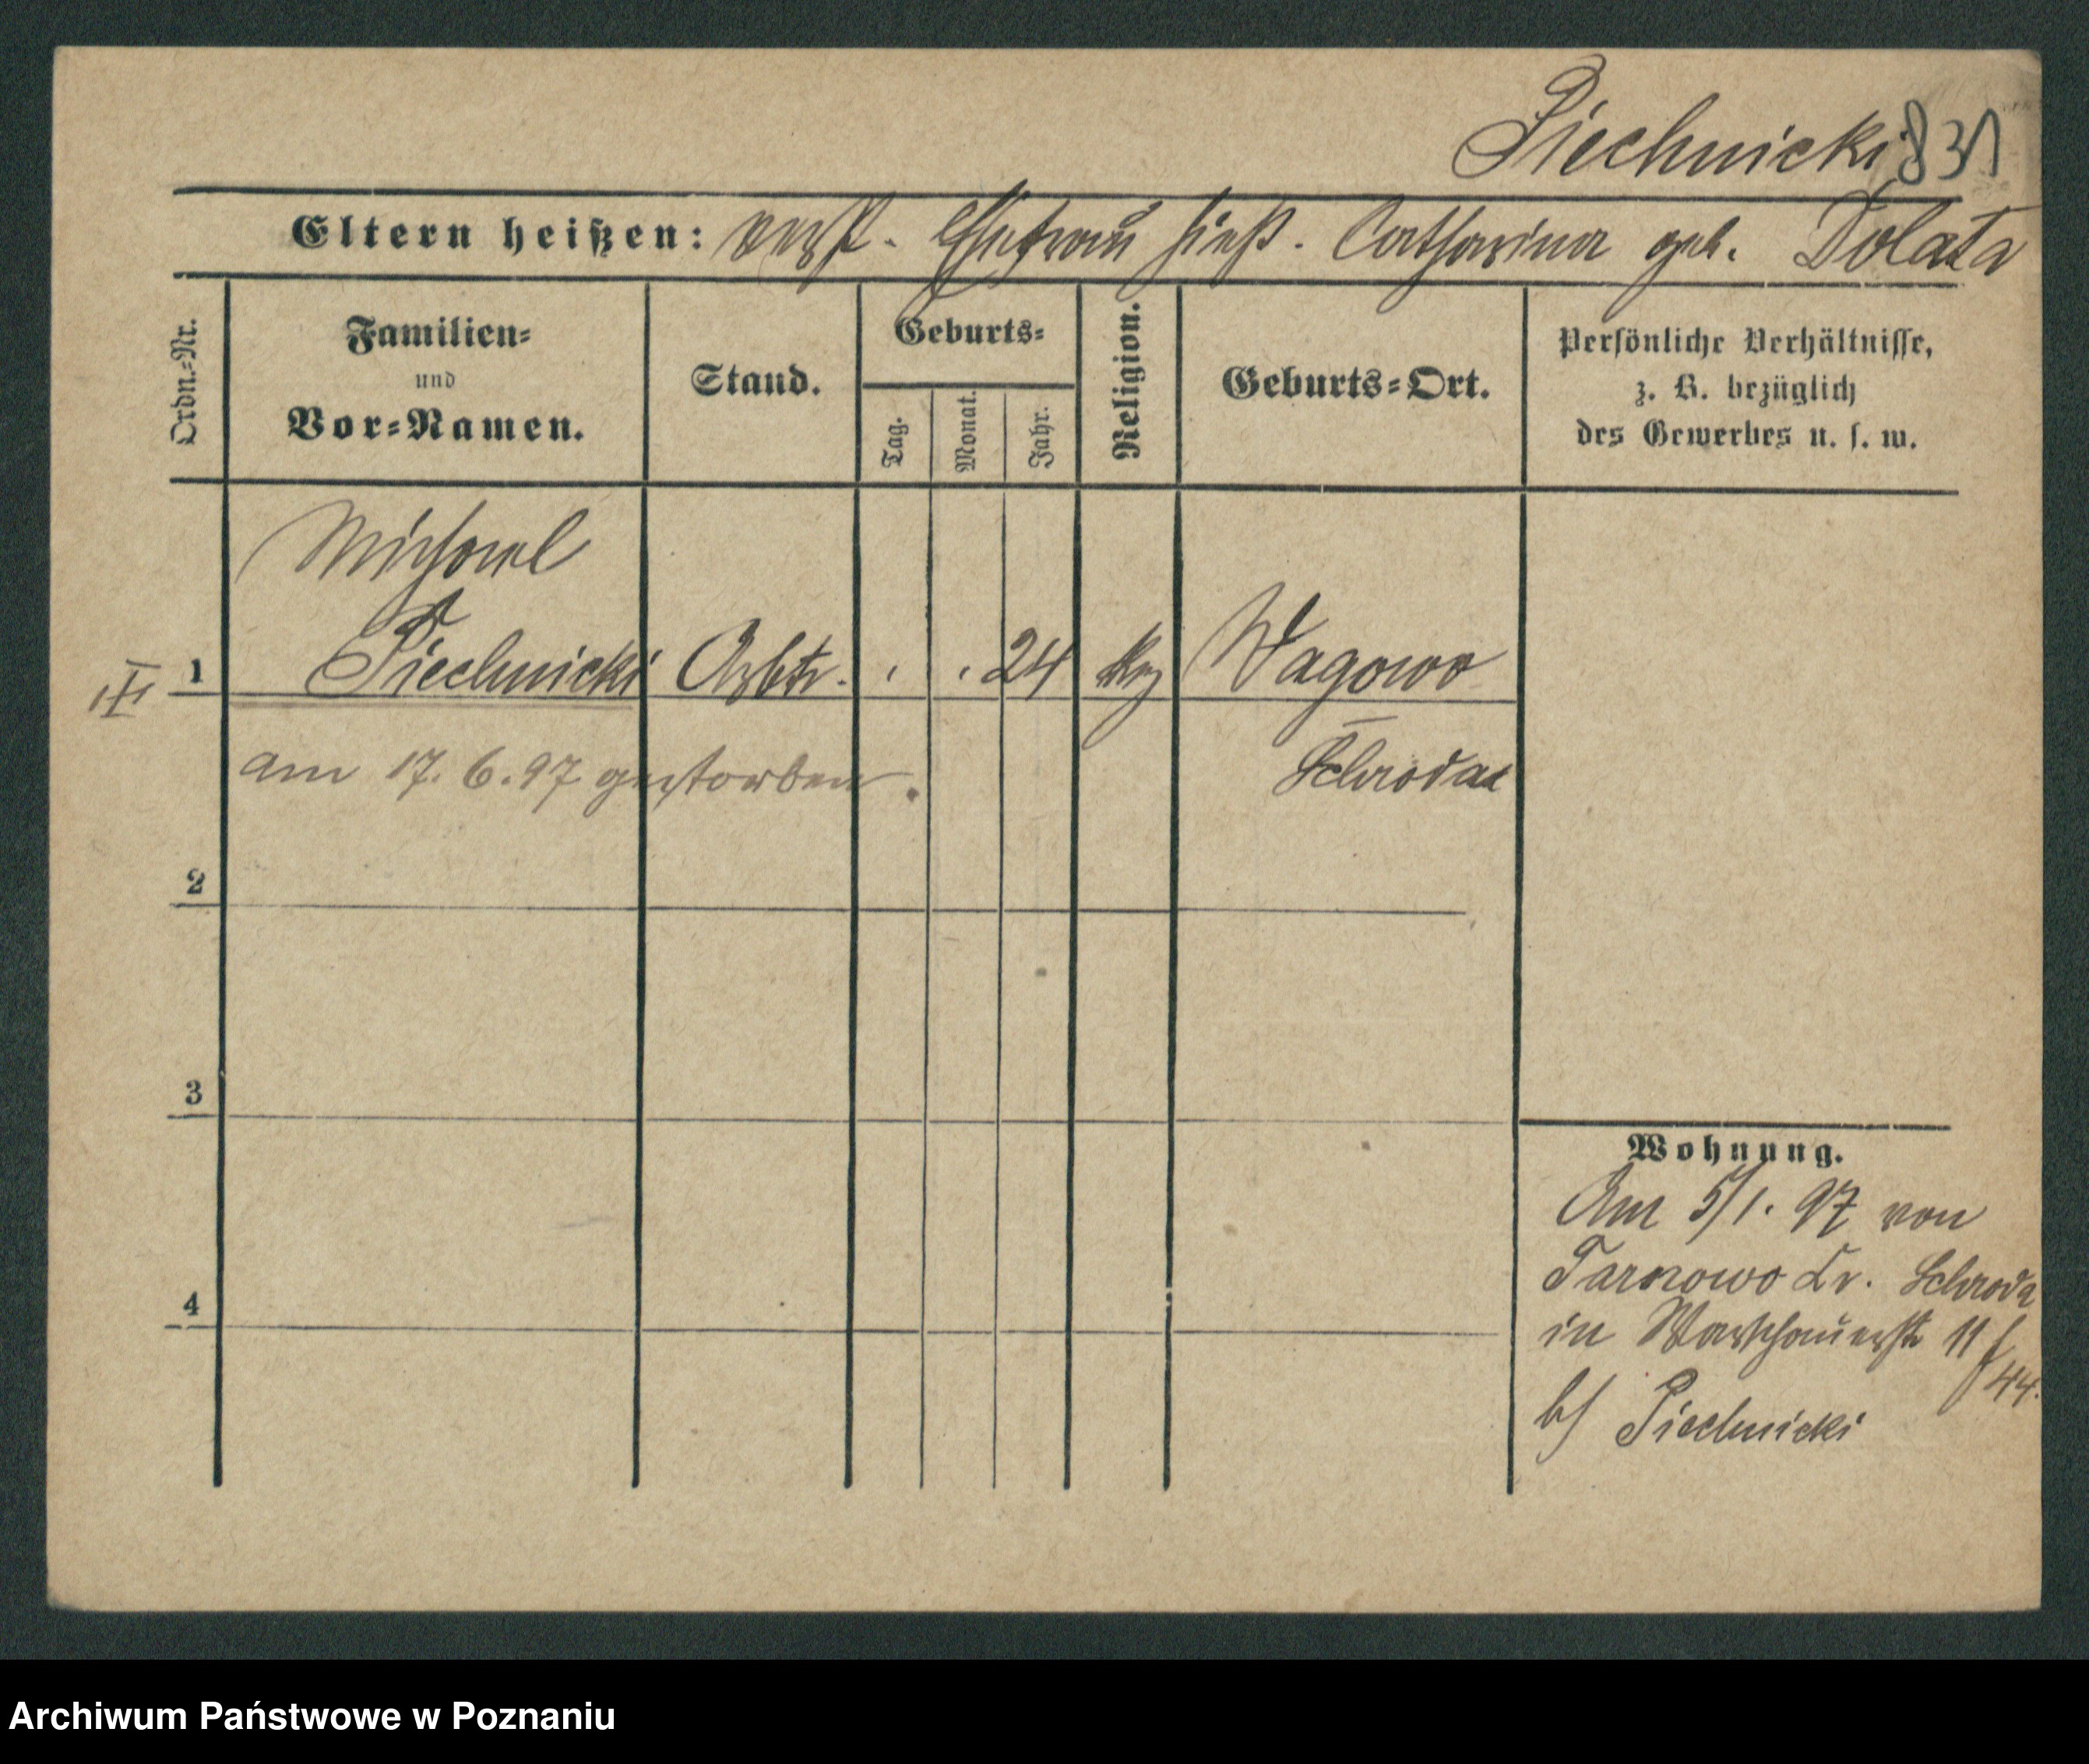 Piechnicki 831
Eltern heißen: verst. Ehefrau hieß. Catharina geb. Dolata
Ordn.-Nr.
Familien-
und
Vor-Namen.
Stand.
Geburts-
Tag.
Monat.
Jahr.
Religion.
Geburts-Ort.
Persönliche Verhältnisse,
z. B. bezüglich
des Gewerbes u. s. w.
Michael
III 1 Piechnicki Arbtr. . . 24 Wagowo
am 17. 6. 97 gestorben. Schroda
2
3
4
Wohnung.
Am 5/1. 97 von
Tarnowo Kr. Schroda
in Warschauerstr 11
/44.
b/ Piechnicki
Archiwum Państwowe w Poznaniu